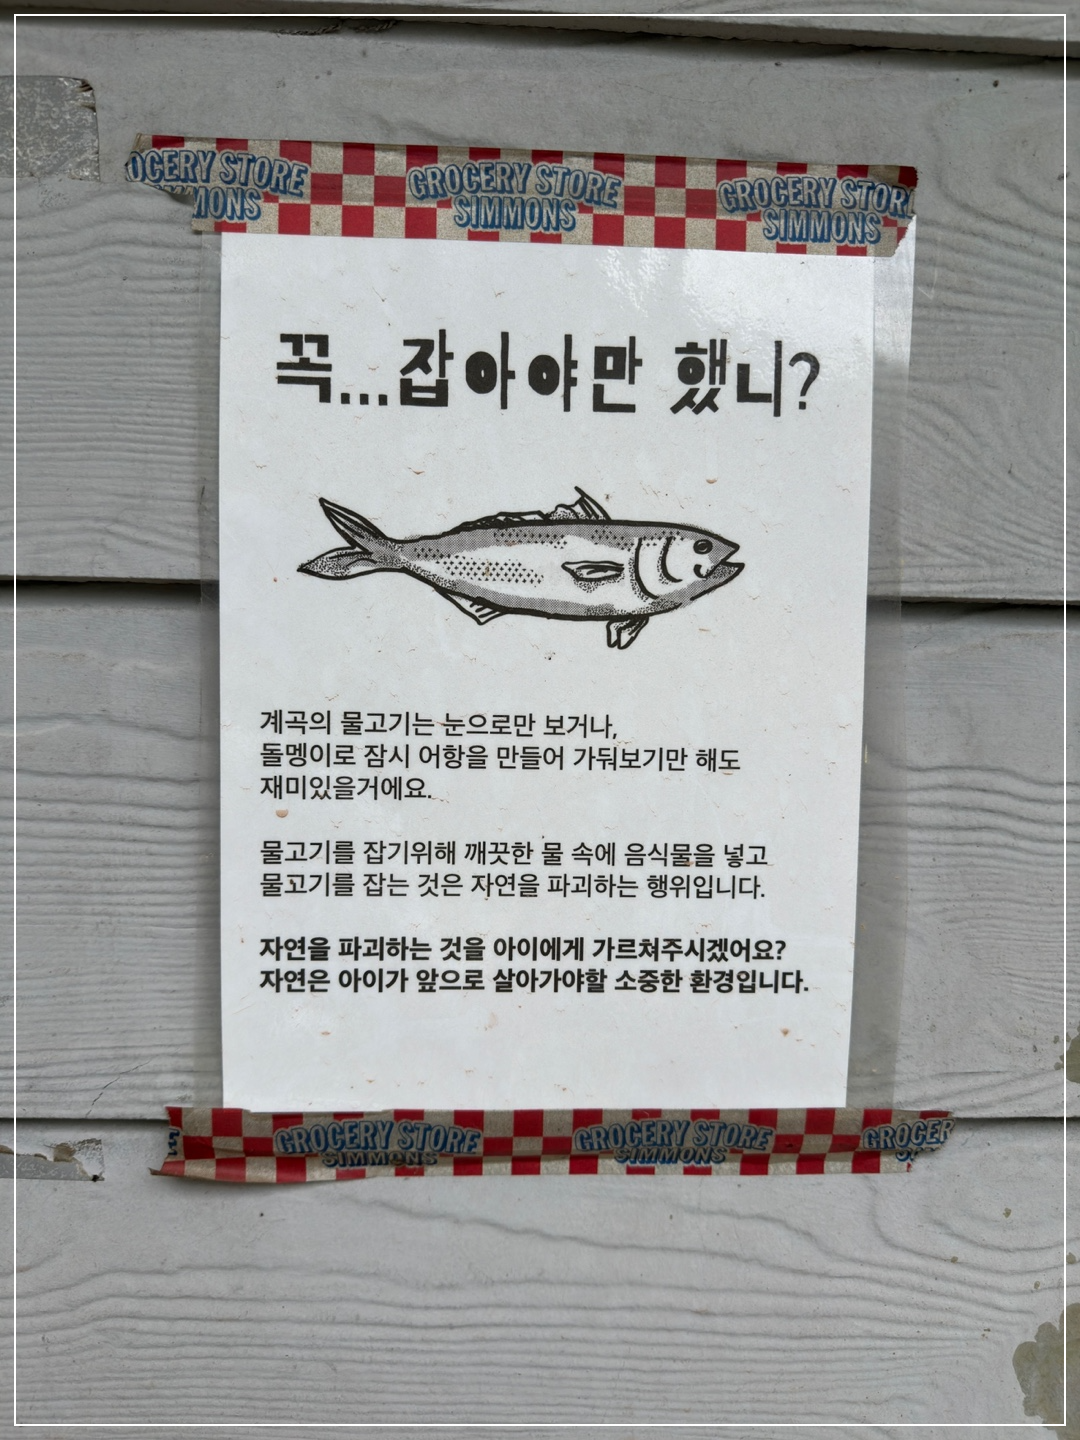 GROCERY STORE GROCERY STORE
SIMMONS SIMMONS
꼭...잡아야만 했니?
계곡의 물고기는 눈으로만 보거나,
돌멩이로 잠시 어항을 만들어 가둬보기만 해도
재미있을거에요.
물고기를 잡기위해 깨끗한 물 속에 음식물을 넣고
물고기를 잡는 것은 자연을 파괴하는 행위입니다.
자연을 파괴하는 것을 아이에게 가르쳐주시겠어요?
자연은 아이가 앞으로 살아가야할 소중한 환경입니다.
GROCERY STORE GROCERY STORE
SIMMONS SIMMONS